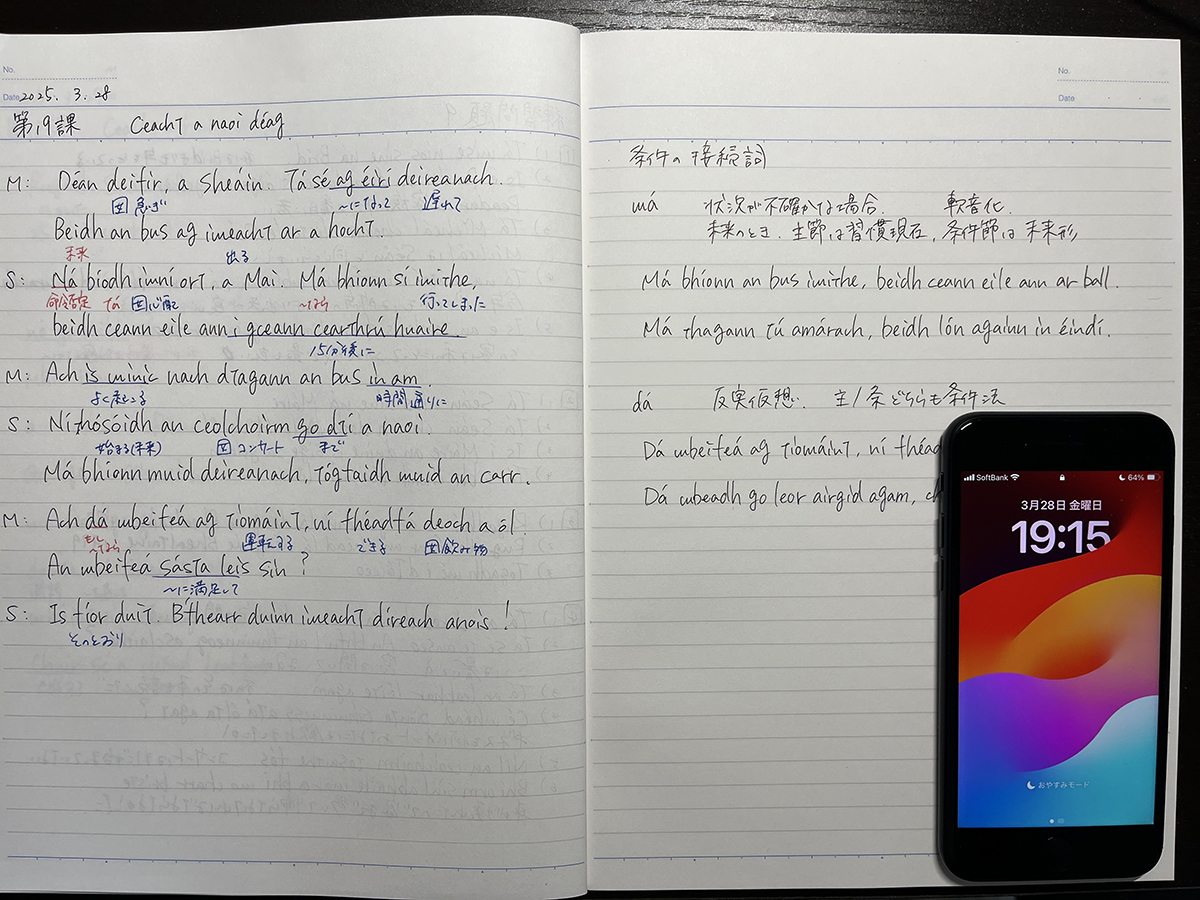 No.
Date 2025. 3. 28
第19課 Ceacht a naoi déag
M: Déan deifir, a Sheáin. Tá sé ag éirí deireanach.
図急ぎ 〜になって 遅れて
Beidh an bus ag imeacht ar a hocht.
未来 出る
S: Ná bíodh imní ort, a Mai. Má bhíonn sí imithe,
命令否定 tá 図心配 〜なら 行ってしまった
beidh ceann eile ann i gceann cearthrú huaire.
15分後に
M: Ach is minic nach dtagann an bus in am.
よく起こる 時間通りに
S: Ní thósóidh an ceolchoirm go dtí a naoi.
始まる(未来) 図コンサート まで
Má bhíonn muid deireanach, tógfaidh muid an carr.
M: Ach dá mbeifeá ag tiomáint, ní fhéadfá deoch a ól.
もし〜なら 運転する できる 図飲み物
An mbeifeá sásta leis sin?
〜に満足して
S: Is fíor duit. B'fhearr duinn imeacht díreach anois!
そのとおり
No.
Date
条件の接続詞
má 状況が不確かな場合. 軟音化.
未来のとき、主節は習慣現在, 条件節は未来形
Má bhíonn an bus imithe, beidh ceann eile ann ar ball.
Má thagann tú amárach, beidh lón againn in éindí.
dá 反実仮想. 主/条どちらも条件法
Dá mbeifeá ag tiomáint, ní fhéad
Dá mbeadh go leor airgid agam, ch
SoftBank 64%
3月28日 金曜日
19:15
おやすみモード